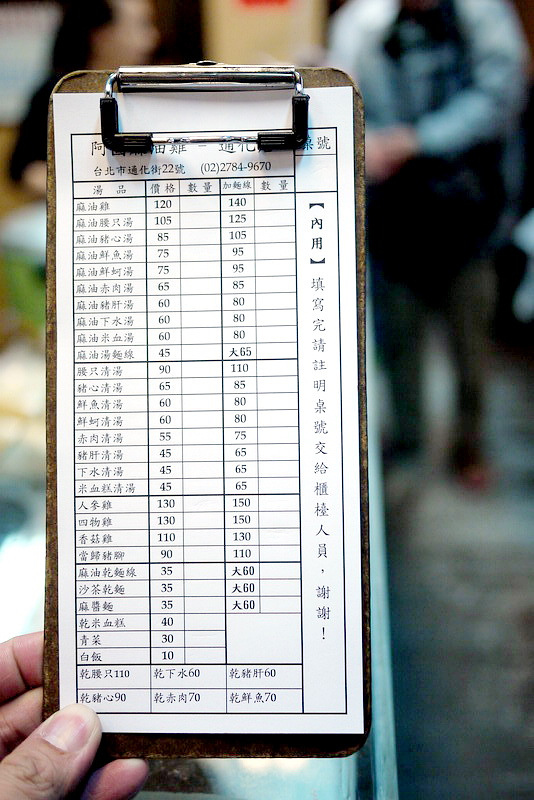 油雞 - 通化 桌號
台北市通化街22號 (02)2784-9670
湯 品 價格 數量 加麵線 數量
麻油雞 120 140
麻油腰只湯 105 125
麻油豬心湯 85 105
麻油鮮魚湯 75 95
麻油鮮蚵湯 75 95
麻油赤肉湯 65 85
麻油豬肝湯 60 80
麻油下水湯 60 80
麻油米血湯 60 80
麻油湯麵線 45 大65
腰只清湯 90 110
豬心清湯 65 85
鮮魚清湯 60 80
鮮蚵清湯 60 80
赤肉清湯 55 75
豬肝清湯 45 65
下水清湯 45 65
米血糕清湯 45 65
人參雞 130 150
四物雞 130 150
香菇雞 110 130
當歸豬腳 90 110
麻油乾麵線 35 大60
沙茶乾麵 35 大60
麻醬麵 35 大60
乾米血糕 40
青菜 30
白飯 10
乾腰只110 乾下水60 乾豬肝60
乾豬心90 乾赤肉70 乾鮮魚70
【內用】填寫完請註明桌號交給櫃檯人員，謝謝！